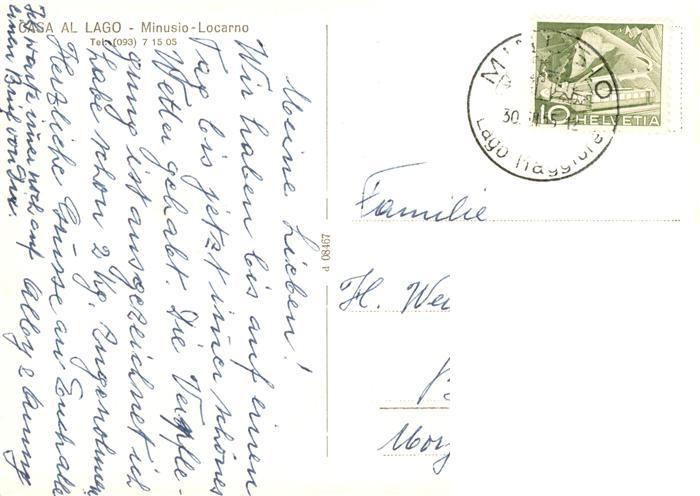 CASA AL LAGO - Minusio-Locarno
Tel. (093) 7 15 05
Meine Lieben!
Wir haben bis auf einen
Tag bis jetzt immer schönes
Wetter gehabt. Die Verpfle-
gung ist ausgezeichnet ich
habe schon 2 Kg. Zugenohmen
Herzliche Grüsse an Euch alle
Alby &
Ich warte immer noch auf
einen Brief von Dir.
d 08467
MINUSIO
30.
Lago Maggiore
10
HELVETIA
Familie
H. We